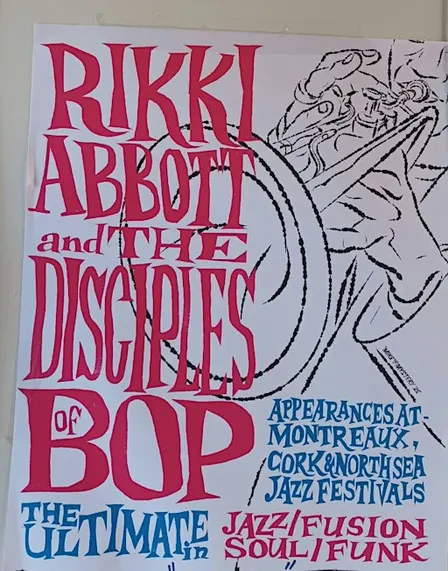 RIKKI
ABBOTT
and THE
DISCIPLES
OF
BOP
APPEARANCES AT-
MONTREAUX,
CORK & NORTH SEA
JAZZ FESTIVALS
THE
ULTIMATE
in
JAZZ/FUSION
SOUL/FUNK